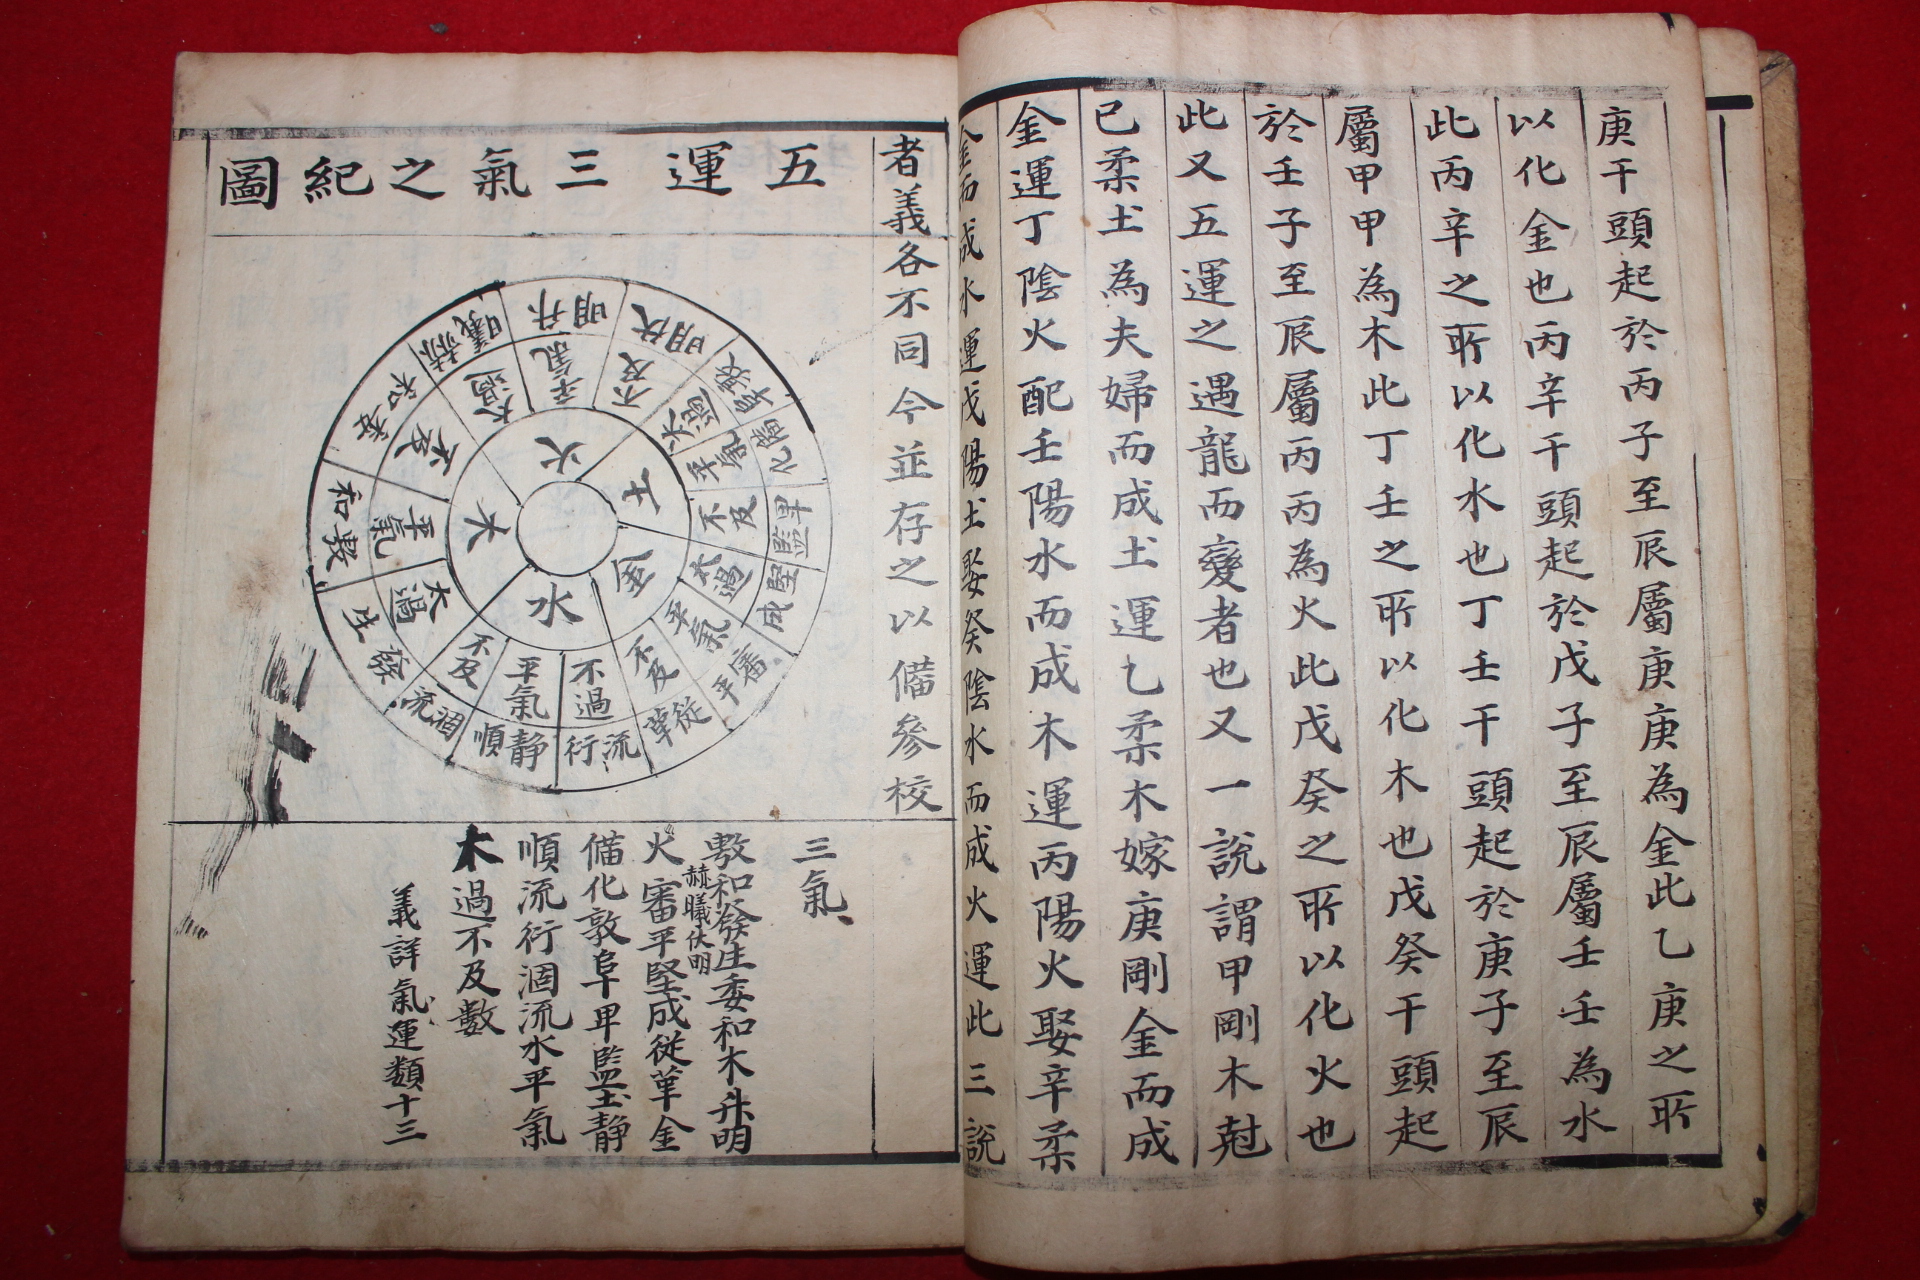 庚干頭起於丙子至辰屬庚庚為金此乙庚之所
以化金也丙辛干頭起於戊子至辰屬壬壬為水
此丙辛之所以化水也丁壬干頭起於庚子至辰
屬甲甲為木此丁壬之所以化木也戊癸干頭起
於壬子至辰屬丙丙為火此戊癸之所以化火也
此又五運之遇龍而變者也又一說謂甲剛木尅
已柔土為夫婦而成土運乚柔木嫁庚剛金而成
金運丁陰火配壬陽水而成木運丙陽火娶辛柔
金而成水運戊陽土娶癸陰水而成火運此三說
者義各不同今並存之以備參校
五運三氣之紀圖
火
土
金
水
木
太過
平氣
不及
太過
平氣
不及
太過
平氣
不及
不過
平氣
不及
太過
平氣
不及
赫曦
升明
伏明
敦阜
備化
卑監
堅成
審平
從革
流行
靜順
涸流
發生
敷和
委和
三氣
敷和發生委和木升明
赫曦伏明
火審平堅成從革金
備化敦阜卑監土靜
順流行涸流水平氣
木過不及數
義詳氣運類十三